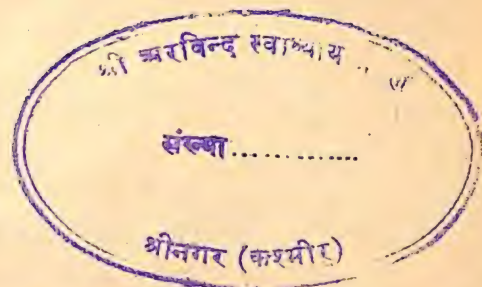 श्री अरविन्द स्वाध्याय
संख्या..............
श्रीनगर (कश्मीर)